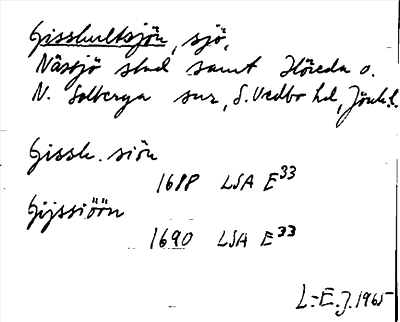 Gisshultsjön, sjö,
Nässjö stad samt Flöreda o.
N. Solberga snr, S. Vedbo hd, Jönk. l.
Gissh. siön
1688 LSA E33
Gijssiöön
1690 LSA E33
L-E. J. 1965